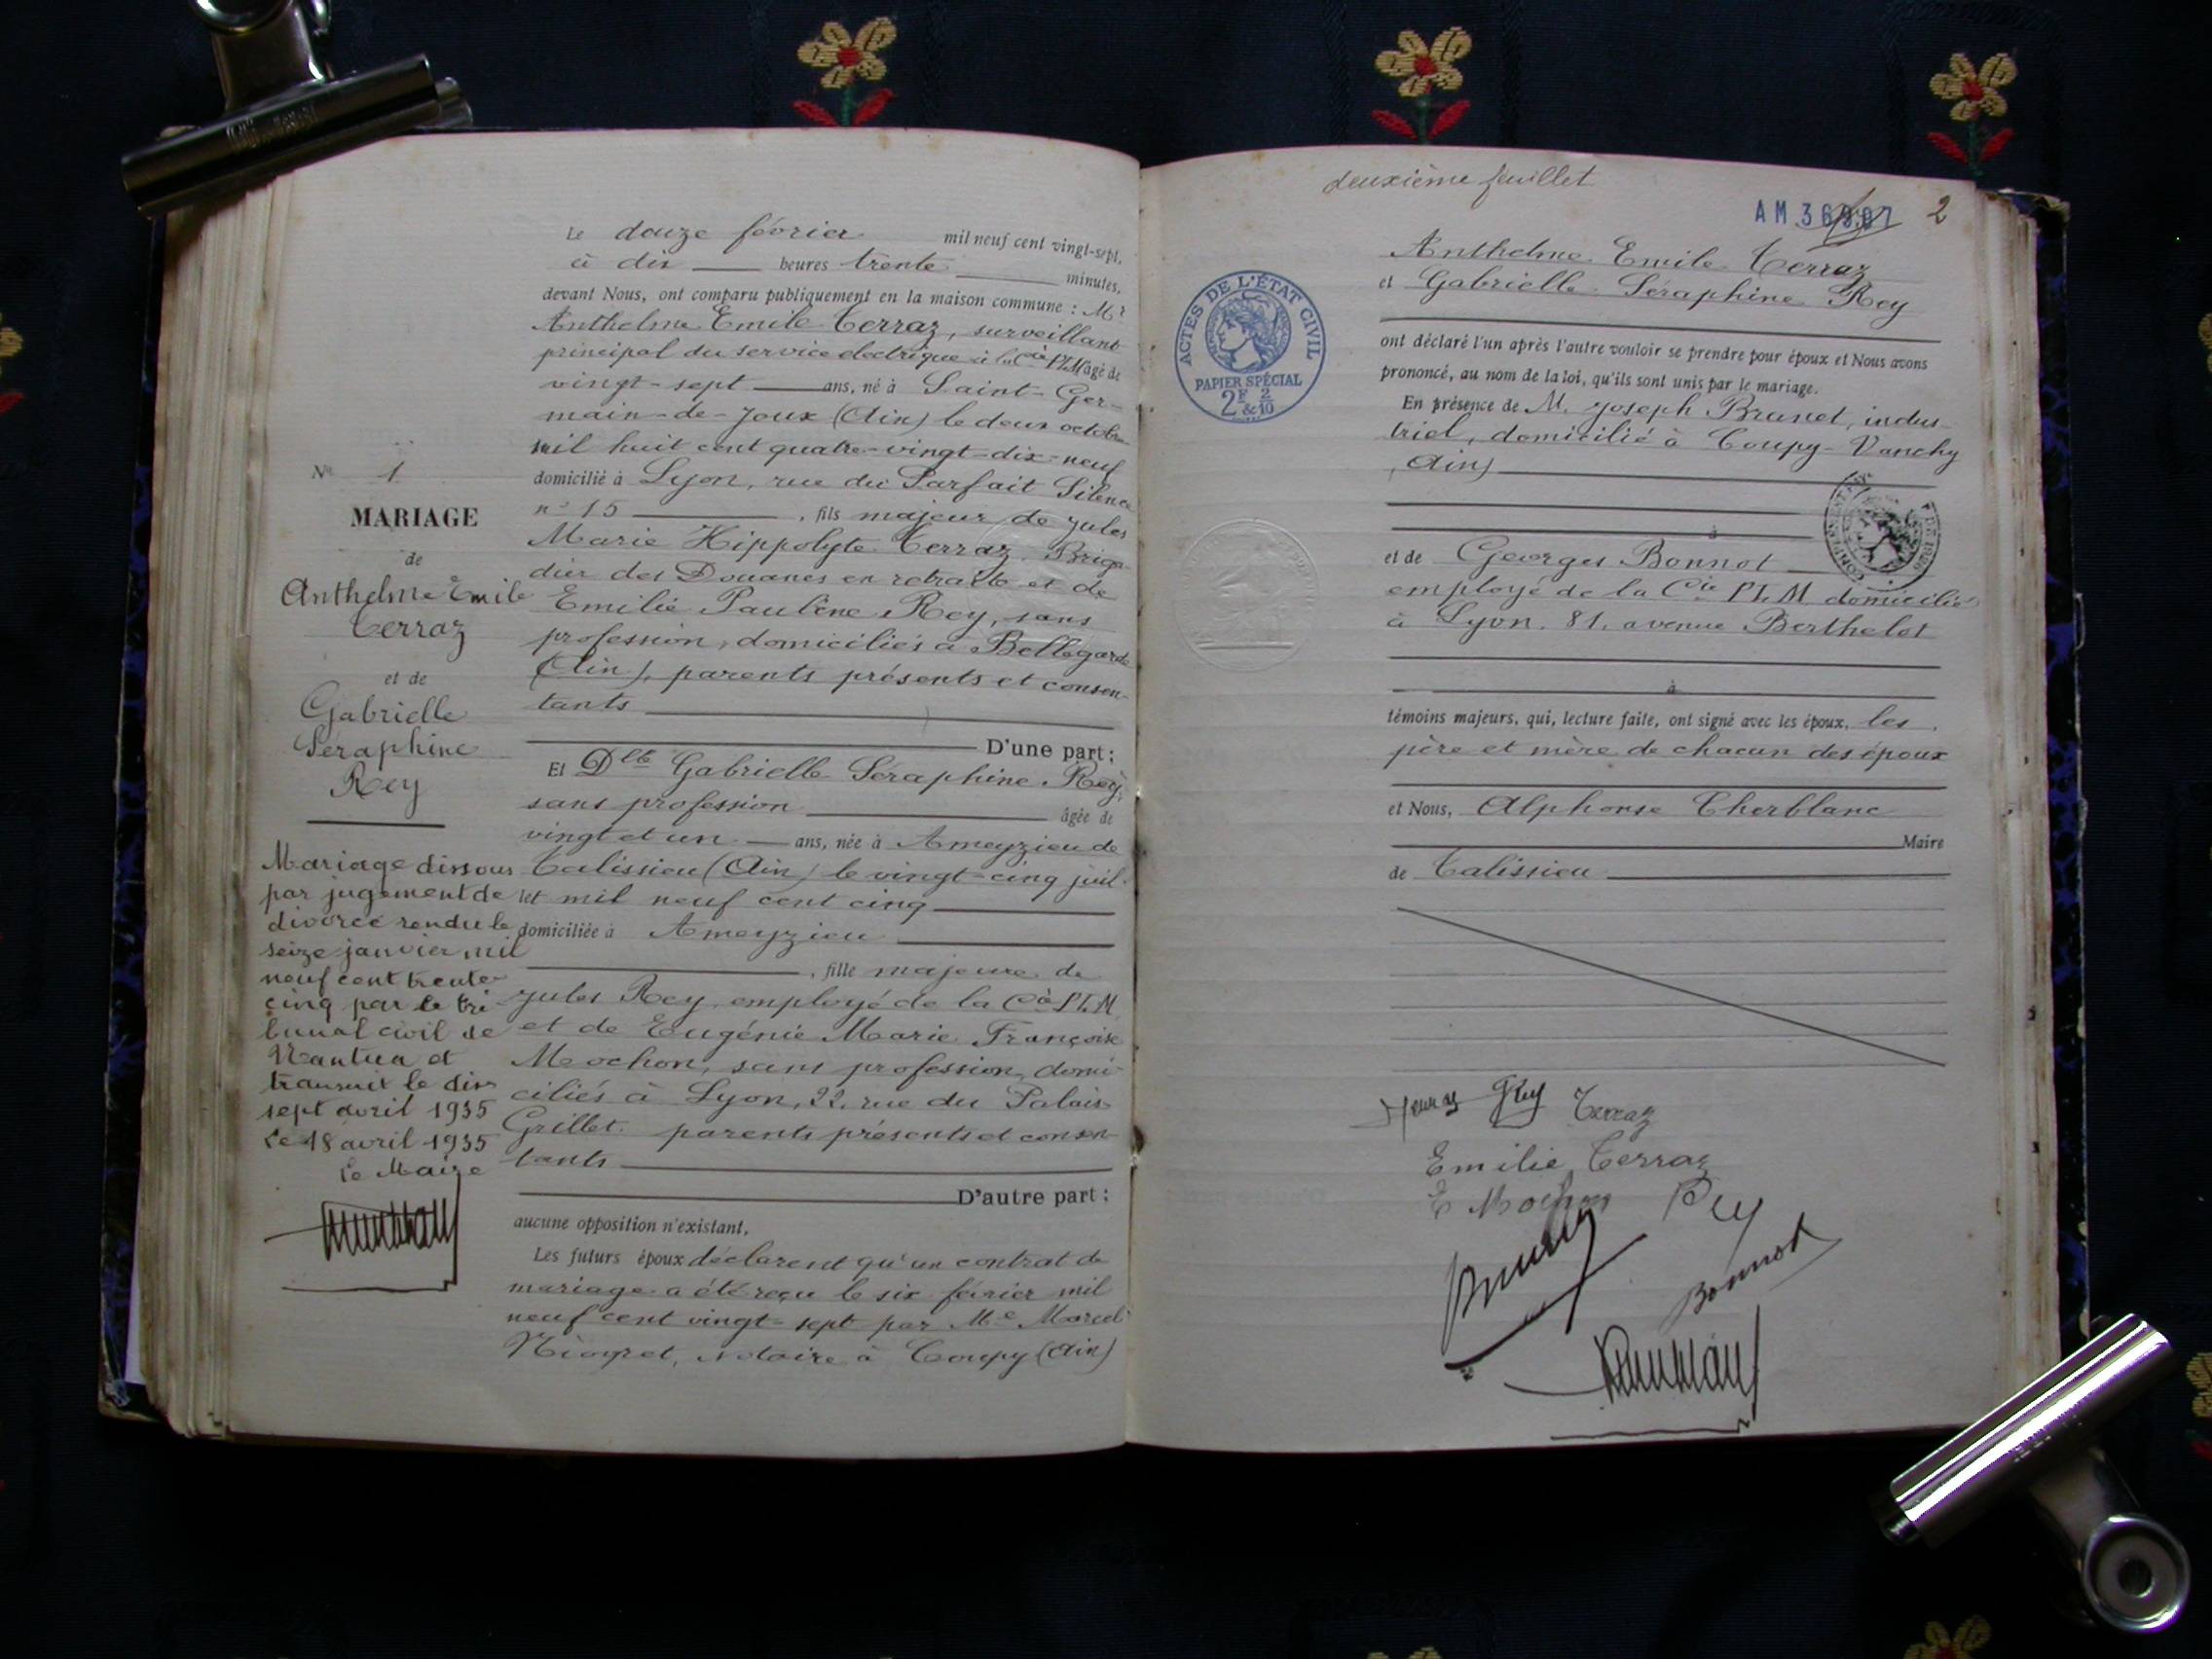 Le douze février mil neuf cent vingt-sept,
à dix heures trente minutes,
devant Nous, ont comparu publiquement en la maison commune : Mr
Anthelme Emile Terraz, surveillant
principal du service électrique à la Cie PLM âgé de
vingt-sept ans, né à Saint-Ger-
main-de-Joux (Ain) le deux octobre
mil huit cent quatre-vingt-dix-neuf
domicilié à Lyon, rue du Parfait Silence
n° 15, fils majeur de Jules
Marie Hippolyte Terraz Briga-
dier des Douanes en retraite et de
Emilie Pauline Rey, sans
profession, domiciliés à Bellegarde
(Ain), parents présents et consen-
tants
D'une part :
Et Dlle Gabrielle Séraphine Rey,
sans profession âgée de
vingt et un ans, née à Ameyzieu de
Talissieu (Ain) le vingt-cinq juil-
let mil neuf cent cinq
domiciliée à Ameyzieu
, fille majeure de
Jules Rey, employé de la Cie PLM
et de Eugénie Marie Françoise
Mochon, sans profession, domi-
ciliés à Lyon, 22, rue du Palais
Grillet. parents présents et consen-
tants
D'autre part :
aucune opposition n'existant,
Les futurs époux déclarent qu'un contrat de
mariage a été reçu le six février mil
neuf cent vingt-sept par Me Marcel
notaire à Coupy (Ain)
N° 1
MARIAGE
de
Anthelme Emile
Terraz
et de
Gabrielle
Séraphine
Rey
Mariage dissous
par jugement de
divorce rendu le
seize janvier mil
neuf cent trente-
cinq par le tri-
bunal civil de
Nantua et
transcrit le dix
sept avril 1935
Le 18 avril 1935
Le Maire
deuxième feuillet
AM 2
Anthelme Emile Terraz
et Gabrielle Séraphine Rey
ont déclaré l'un après l'autre vouloir se prendre pour époux et Nous avons
prononcé, au nom de la loi, qu'ils sont unis par le mariage.
En présence de M. Joseph Brunet, indus-
triel, domicilié à Coupy-Vanchy
(Ain)
à
et de Georges Bonnot
employé de la Cie PLM domicilié
à Lyon. 81, avenue Berthelot
à
témoins majeurs, qui, lecture faite, ont signé avec les époux, les
père et mère de chacun des époux
et Nous, Alphonse Cherblanc
Maire
de Talissieu
ACTES DE L'ÉTAT CIVIL
PAPIER SPÉCIAL
2F & 2/10
Terraz
Emilie Terraz
E Mochon Rey
Bonnot